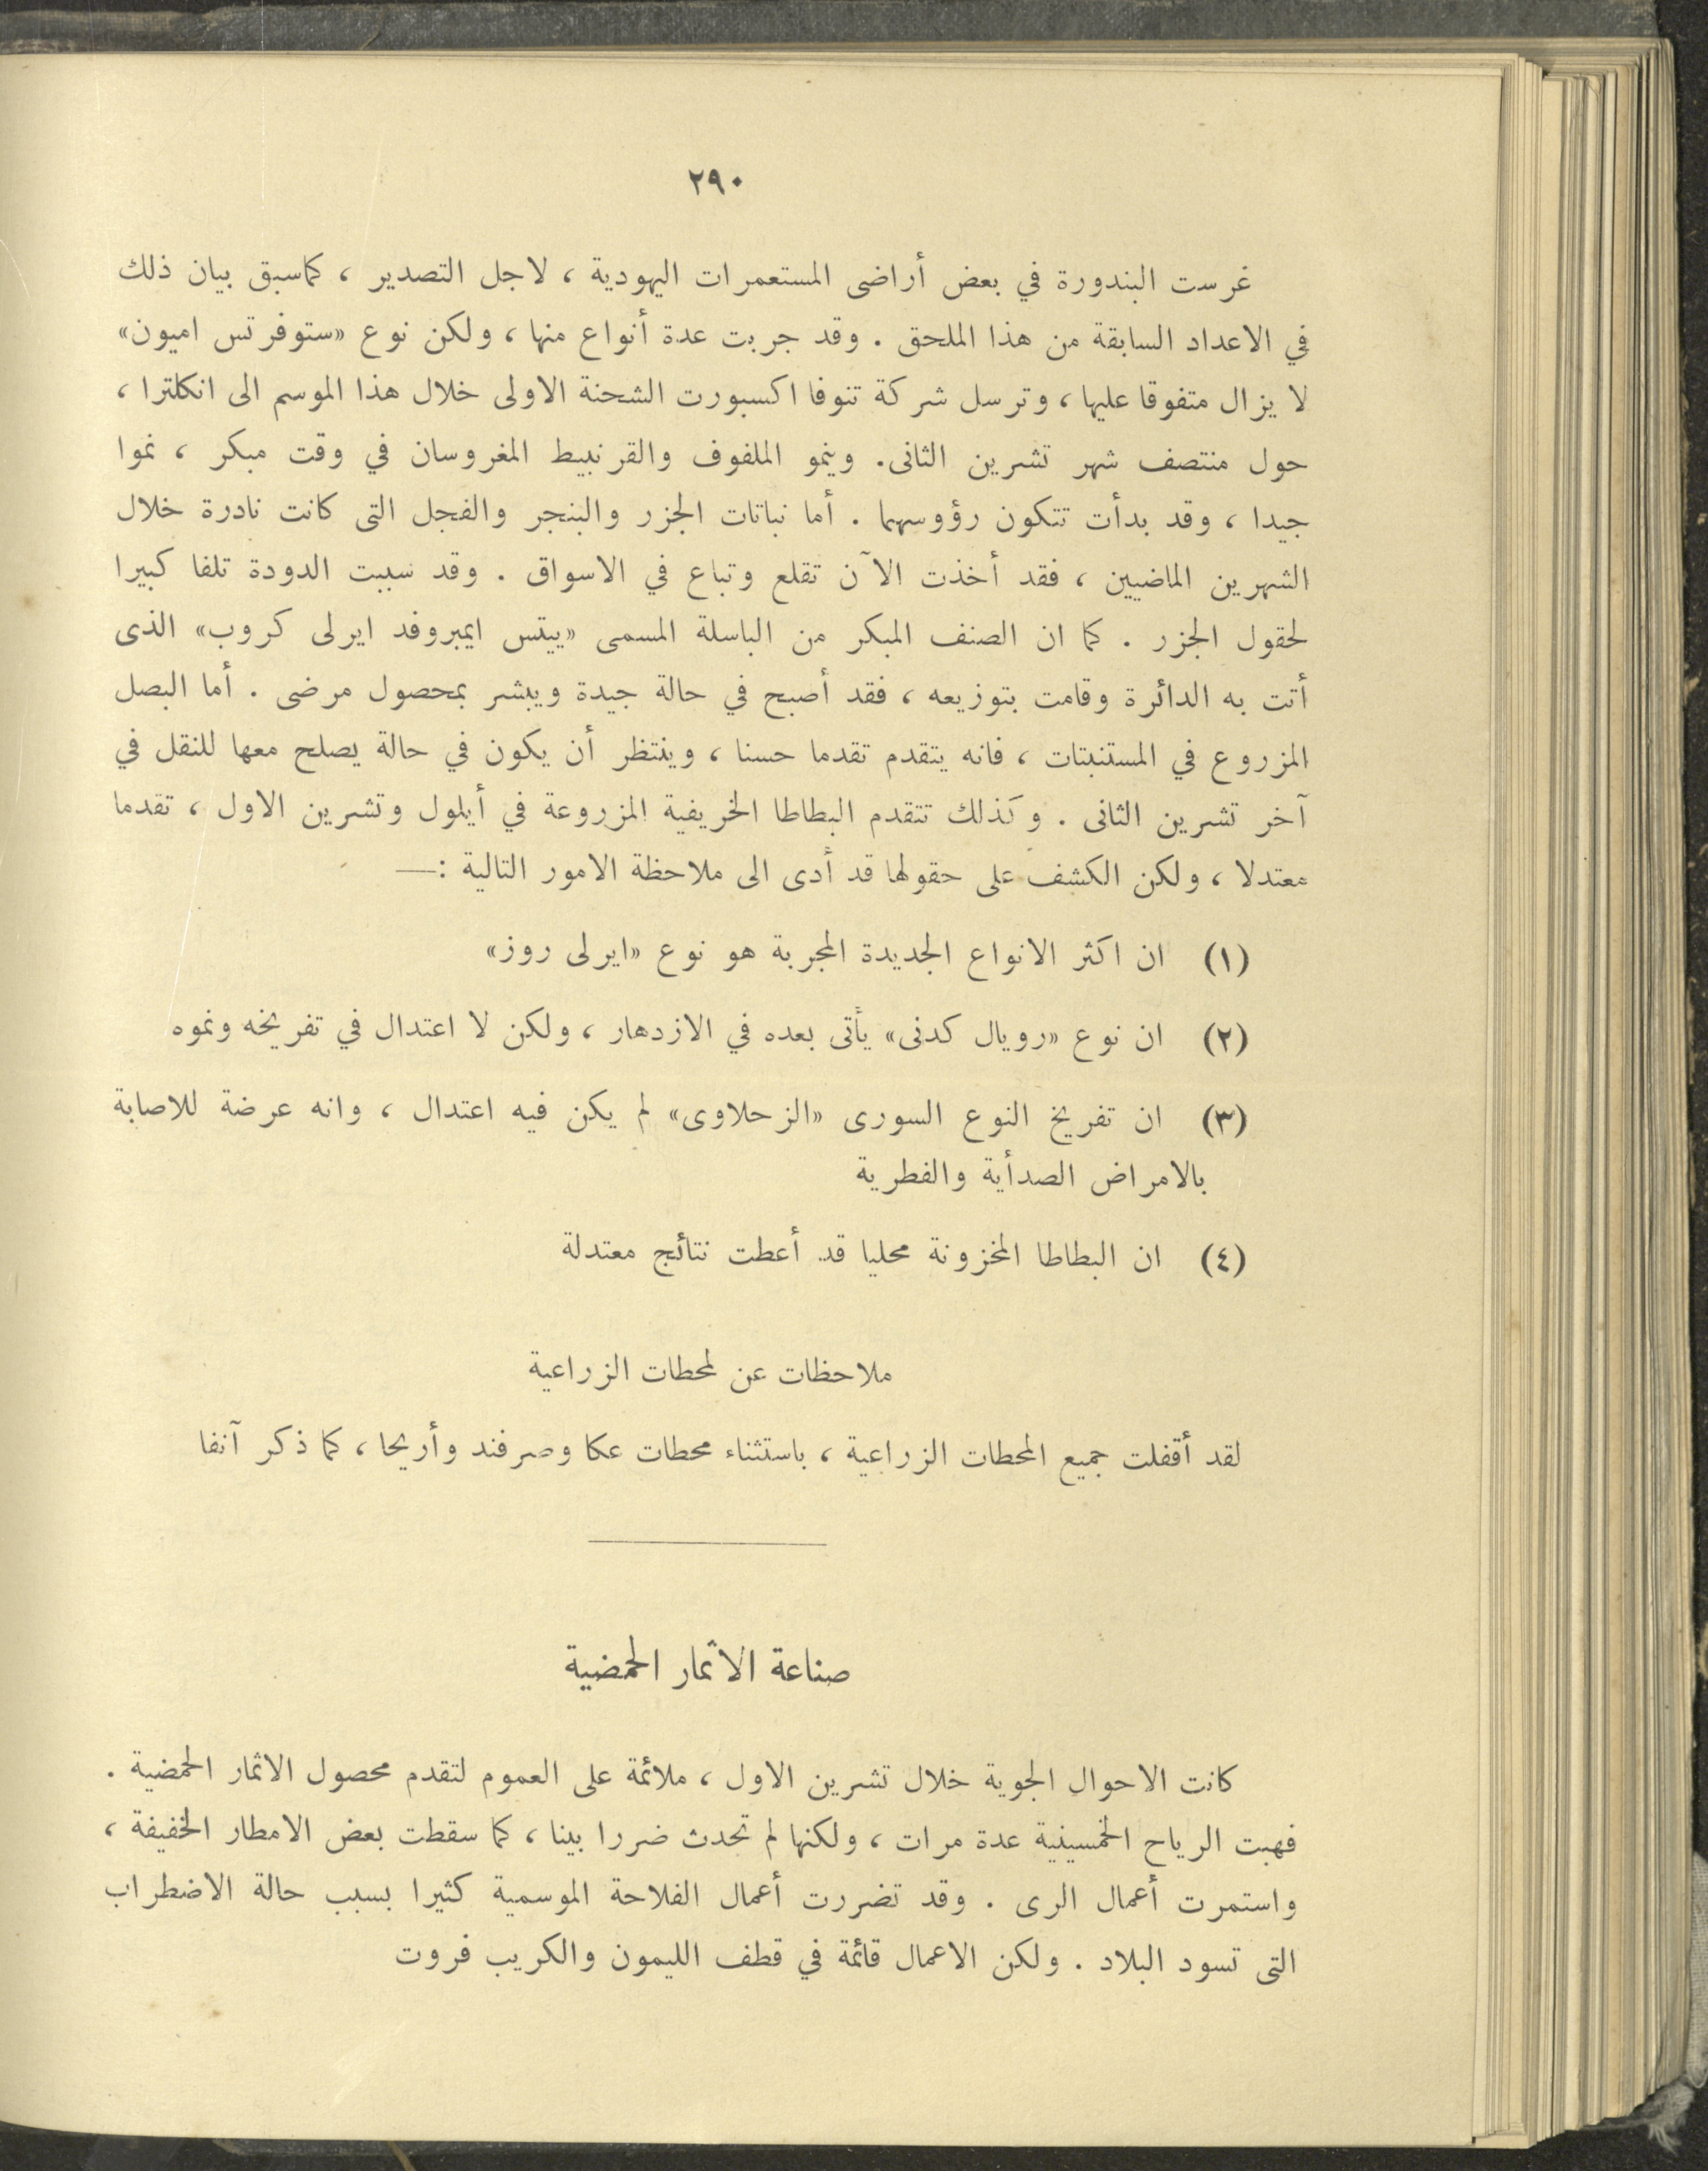 ٢٩٠
غرست البندورة في بعض أراضى المستعمرات اليهودية ، لاجل التصدير ، كماسبق بيان ذلك
في الاعداد السابقة من هذا الملحق . وقد جربت عدة أنواع منها ، ولكن نوع «ستوفرتس اميون»
لا يزال متفوقا عليها ، وترسل شركة تنوفا اكسبورت الشحنة الاولى خلال هذا الموسم الى انكلترا ،
حول منتصف شهر تشرين الثانى. وينمو الملفوف والقرنبيط المغروسان في وقت مبكر ، نموا
جيدا ، وقد بدأت تتكون رؤوسهما . أما نباتات الجزر والبنجر والفجل التى كانت نادرة خلال
الشهرين الماضيين ، فقد أخذت الآن تقلع وتباع في الاسواق . وقد سببت الدودة تلفا كبيرا
لحقول الجزر . كما ان الصنف المبكر من الباسلة المسمى «ييتس ايمبروفد ايرلى كروب» الذى
أتت به الدائرة وقامت بتوزيعه ، فقد أصبح في حالة جيدة ويبشر بمحصول مرضى . أما البصل
المزروع في المستنبتات ، فانه يتقدم تقدما حسنا ، وينتظر أن يكون في حالة يصلح معها للنقل في
آخر تشرين الثانى . وكذلك تتقدم البطاطا الخريفية المزروعة في أيلول وتشرين الاول ، تقدما
معتدلا ، ولكن الكشف على حقولها قد أدى الى ملاحظة الامور التالية :—
(١) ان اكثر الانواع الجديدة المجربة هو نوع «ايرلى روز»
(٢) ان نوع «رويال كدنى» يأتى بعده في الازدهار ، ولكن لا اعتدال في تفريخه ونموه
(٣) ان تفريخ النوع السورى «الزحلاوى» لم يكن فيه اعتدال ، وانه عرضة للاصابة
بالامراض الصدأية والفطرية
(٤) ان البطاطا المخزونة محليا قد أعطت نتائج معتدلة
ملاحظات عن لمحطات الزراعية
لقد أقفلت جميع المحطات الزراعية ، باستثناء محطات عكا وصرفند وأريحا ، كما ذكر آنفا
صناعة الاثمار الحمضية
كانت الاحوال الجوية خلال تشرين الاول ، ملائمة على العموم لتقدم محصول الاثمار الحمضية .
فهبت الرياح الخمسينية عدة مرات ، ولكنها لم تحدث ضررا بينا ، كما سقطت بعض الامطار الخفيفة ،
واستمرت أعمال الرى . وقد تضررت أعمال الفلاحة الموسمية كثيرا بسبب حالة الاضطراب
التى تسود البلاد . ولكن الاعمال قائمة في قطف الليمون والكريب فروت